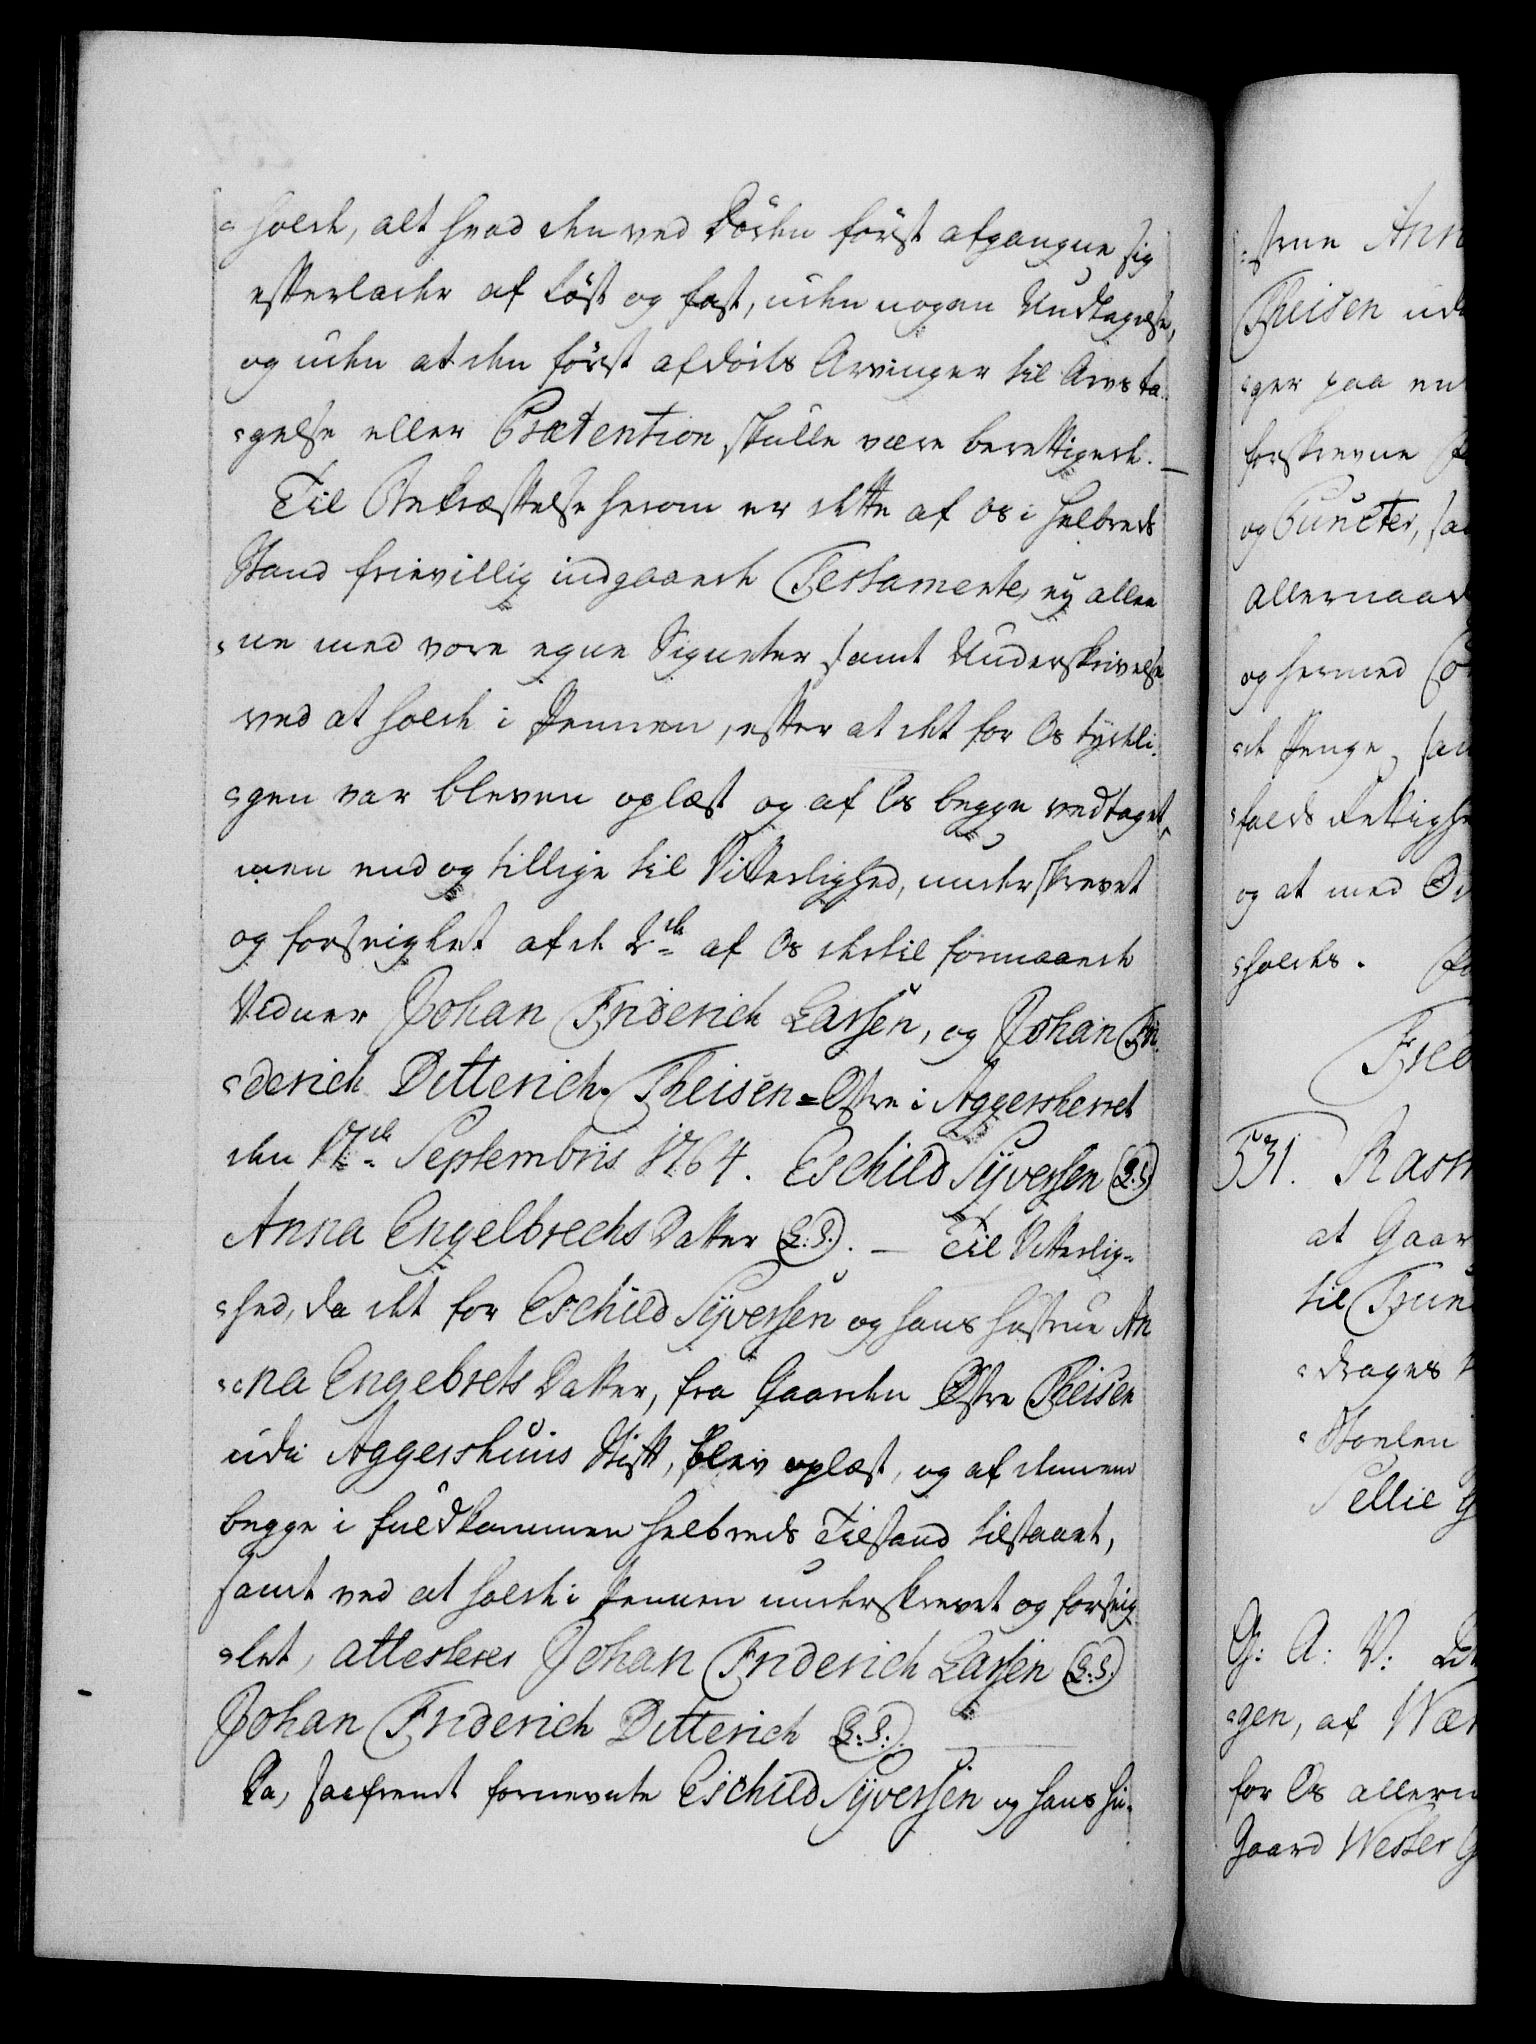 holde, alt hvad den ved Döden först afgangne sig
efterlader af löst og fast, uden nogen Undtagelse,
og uden at den först afdödes Arvinger til Arvs ta-
gelse eller Prætention skulle være berettigede. —
Til Bekræftelse herom er dette af os i helbreds
Stand frievillig indgaaede Testamente, ey allee
ne med vore egne Signeter samt Underskrivelse
ved at holde i Pennen, efter at det for Os tydeli-
gen var bleven oplæst og af Os begge vedtaget,
men end og tillige til Vitterlighed, underskrevet
og forseiglet af de 2de af Os dertil formaaede
Vidner Johan Friderich Larsen, og Johan Fri-
derich Ditterich. Theisen-Østre i Aggersherret
den 17de Septembris 1764. Eschild Syversen (L.S.)
Anna Engelbrechs Datter (L.S.). — Til Vitterlig-
hed, da det for Eschild Syversen og hans Hustrue An
na Engebrets Datter, fra Gaarden Østre Theisen
udi Aggershuus Stift, blev oplæst, og af dennem
begge i fuldkommen helbreds Tilstand tilstaaet,
samt ved at holde i Pennen underskrevet og forseig
let, attesterer Johan Friderich Larsen (L.S.)
Johan Friderich Ditterich (L.S.)
Da, saafremt fornevnte Eschild Syversen og hans Hu-
strue Ann
Theisen ud
ger paa en
forskrevne
og Puncter, saa
allernaad
og hermed Co
de Penge, saa
falds Rettighe
og at med
holdes.
Fred
531. Rasm
at Gaar
til Trun
drages
Stoelen
Tellie G
G: A: V:
gen, af Wær
for Os allern
Gaard Wester G